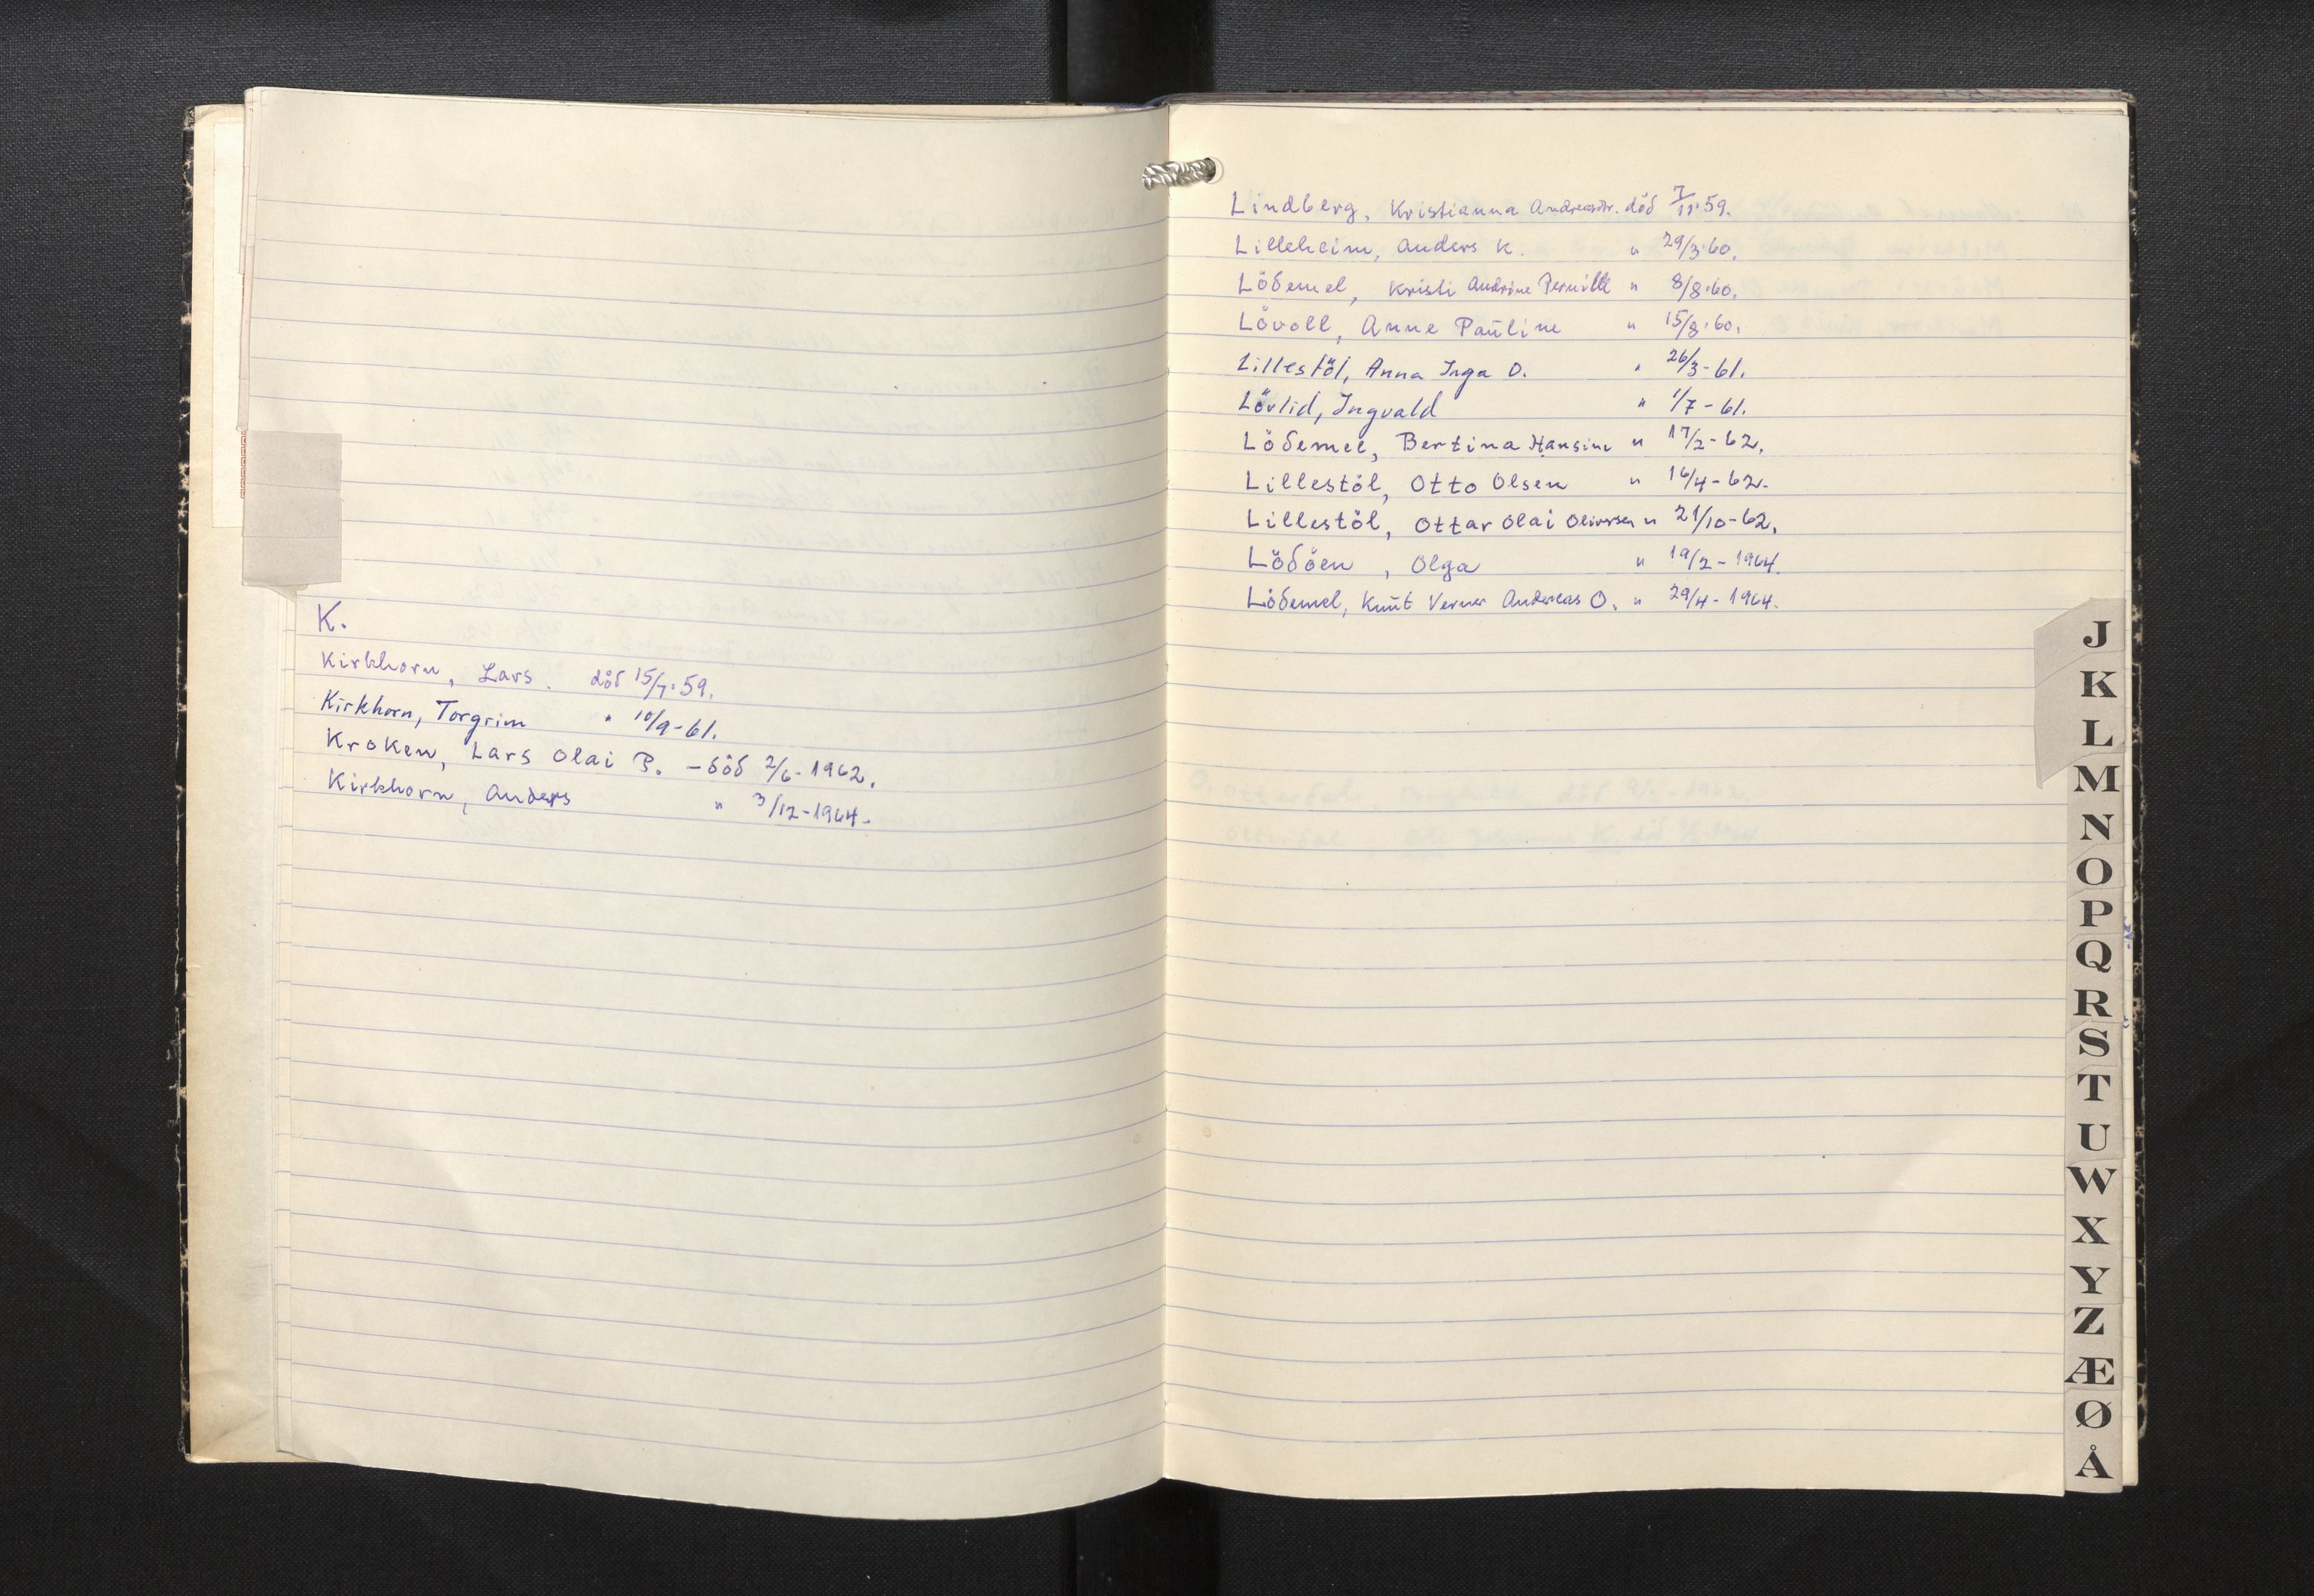 K.
Kirkhorn, Lars. död 15/7·59.
Kirkhorn, Torgrim " 10/9-61.
Kroken, Lars Olai B. - död 2/6-1962.
Kirkhorn, Anders " 3/12-1964.
Lindberg, Kristianna Andreasdtr. död 7/11·59.
Lilleheim, Anders K. " 29/3·60.
Lödemel, Kristi Andrine Pernille " 8/8·60.
Lövoll, Anne Pauline " 15/8·60.
Lillestöl, Anna Inga O. " 26/3-61.
Lövlid, Ingvald " 1/7-61.
Lödemel, Bertina Hansine " 17/2-62.
Lillestöl, Otto Olsen " 16/4-62.
Lillestöl, Ottar Olai Oliversen " 21/10-62.
Lödöen, Olga " 19/2-1964.
Lödemel, Knut Verner Andreas O. " 29/4-1964.
J
K
L
M
N
O
P
Q
R
S
T
U
W
X
Y
Z
Æ
Ø
Å